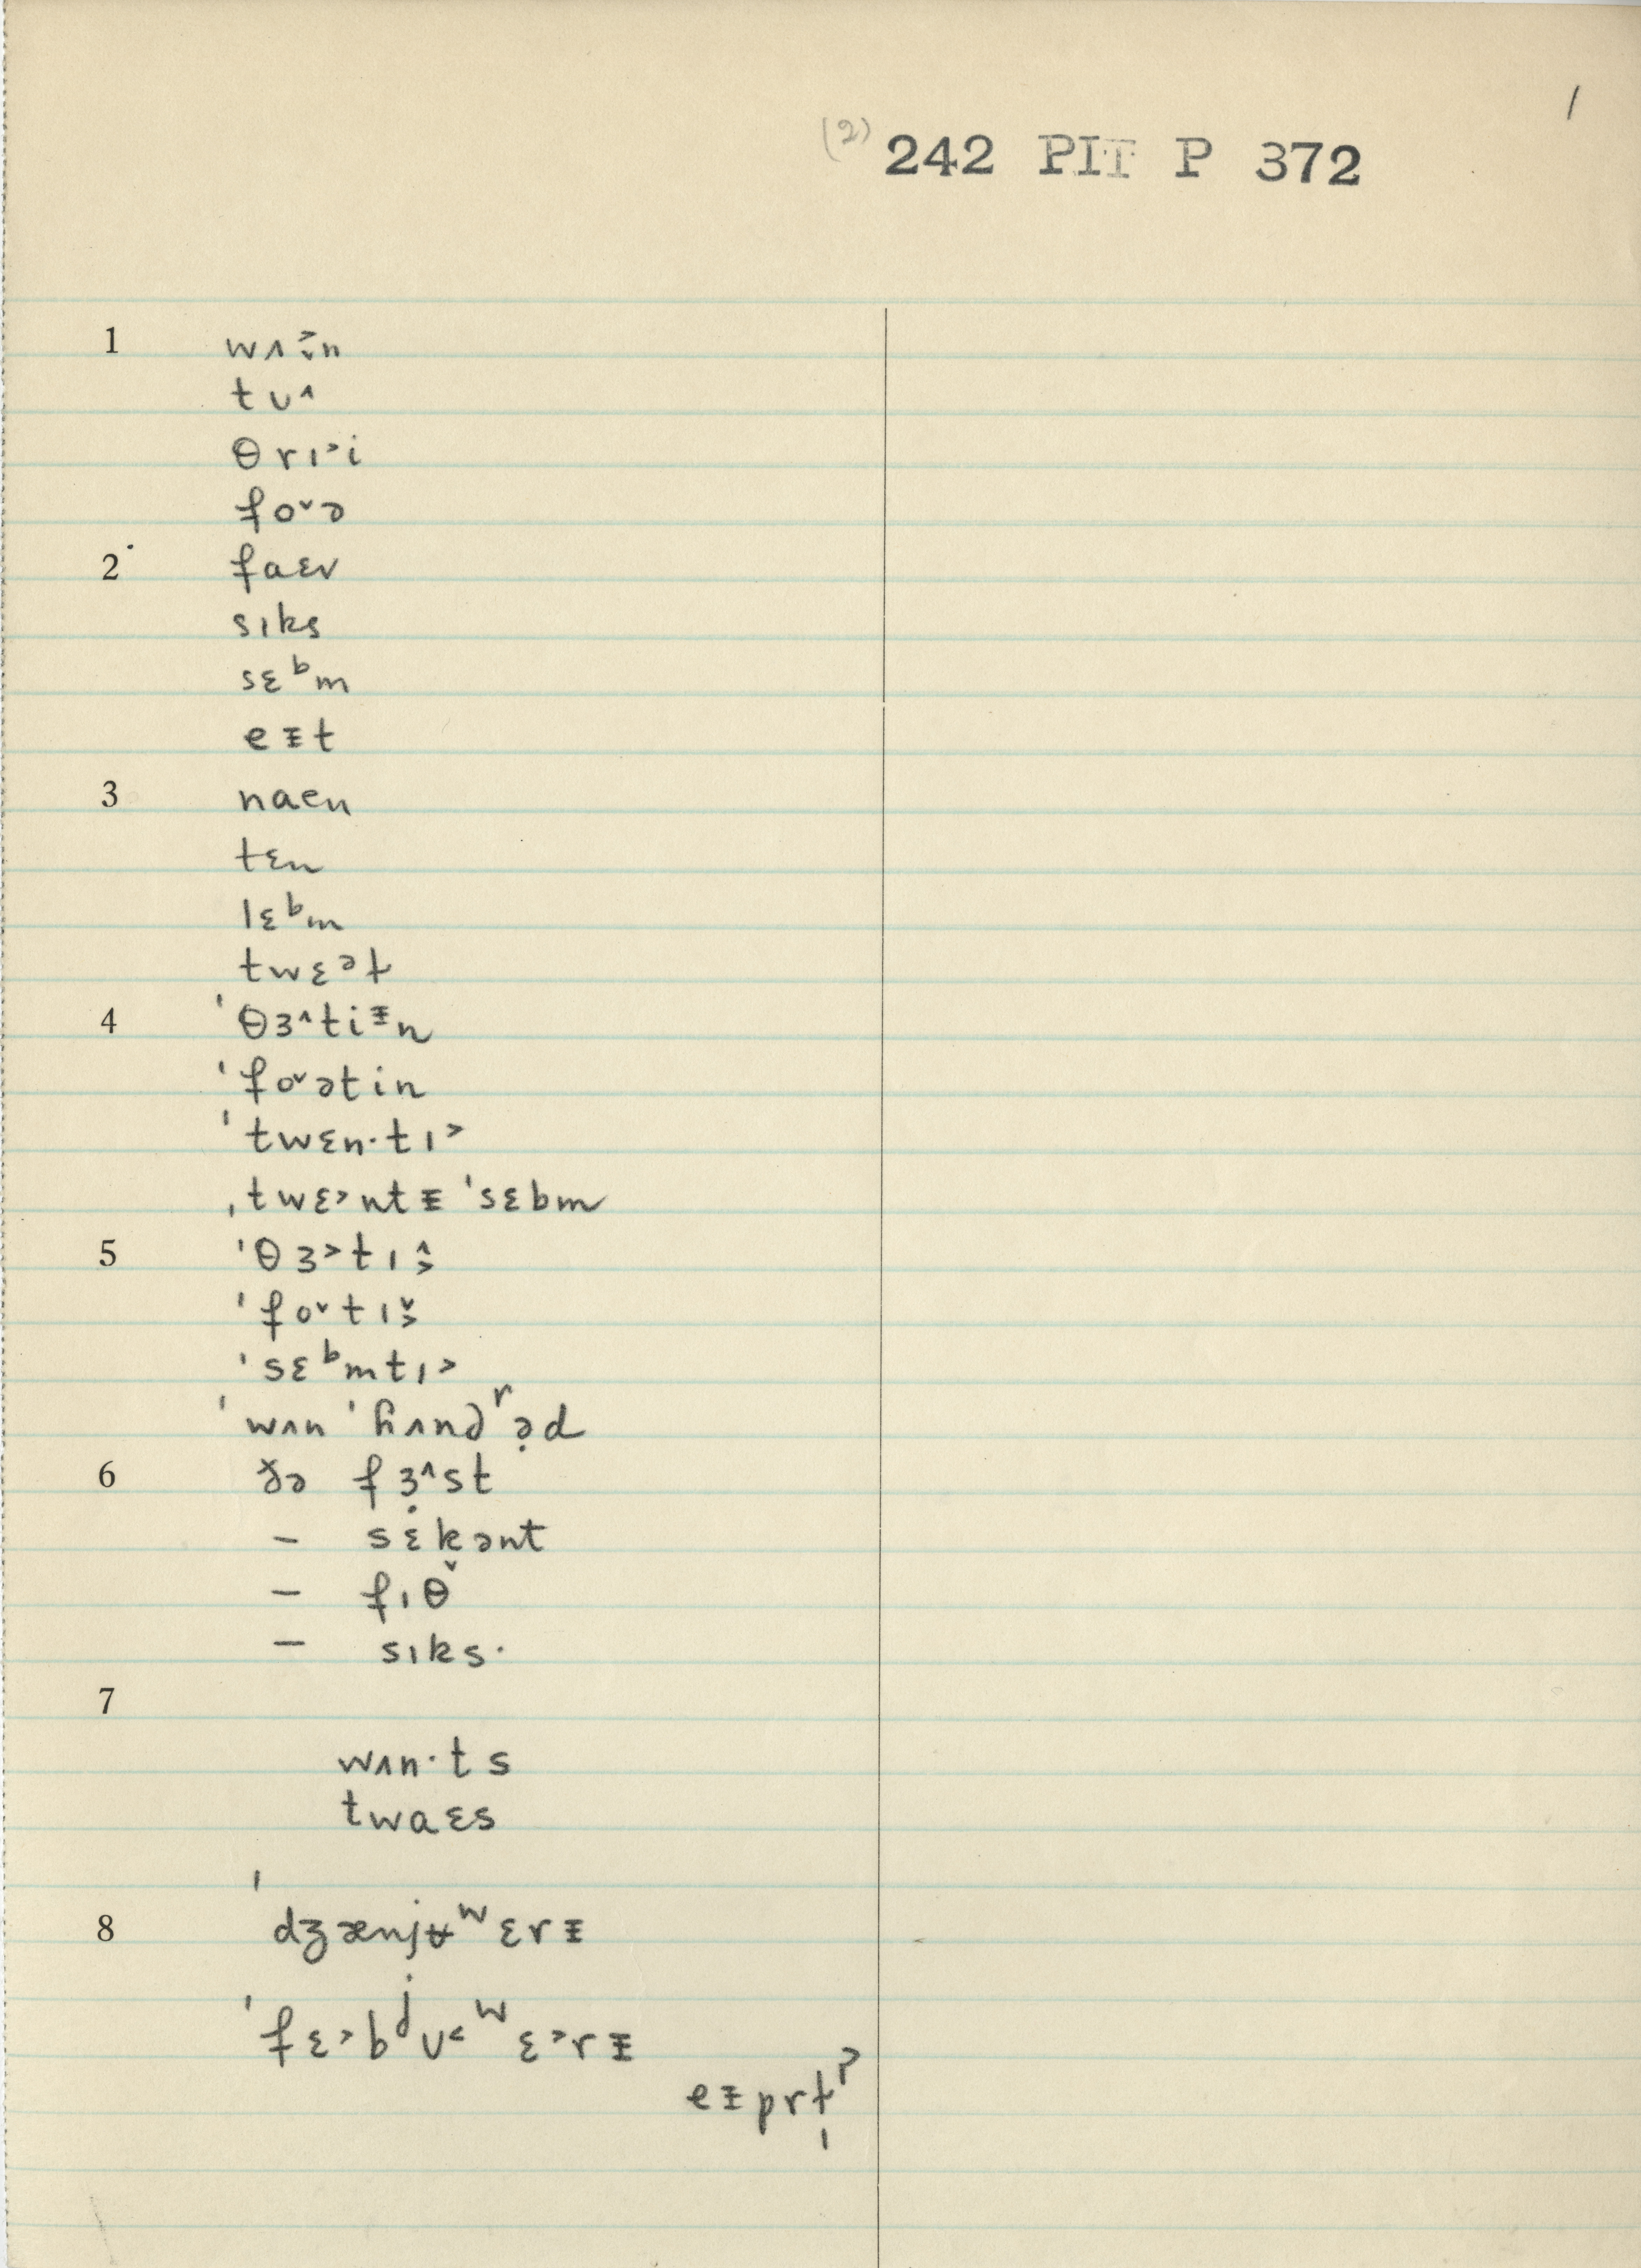 1
(2) 242 PIT P 372
1 wʌ˃̬n
tʊ˄
θrɪ˃i
fo˅ə
2 faɛv
sɪks
sɛᵇm
eᵻt
3 naen
tɛn
lɛᵇm
twɛᵊɫ
4 ˈθɜ˄tiᵻn
ˈfo˅ətin
ˈtwɛn·tɪ˃
ˌtwɛ˃ntᵻ ˈsɛbm
5 ˈθɜ˃tɪ˄˃
ˈfo˅tɪ˅˃
ˈsɛᵇmtɪ˃
ˈwʌn ˈɦʌndʳə̣d
6 ðə fɜ̣˄st
– sɛ̇kənt
– fɪθ̌
– sɪks·
7
wʌn·ts
twaɛs
8 ˈdʒænjʉʷɛrᵻ
ˈfɛ˃bʲʊ˂ʷɛ˃rᵻ
eᵻprɫ̩ˀ